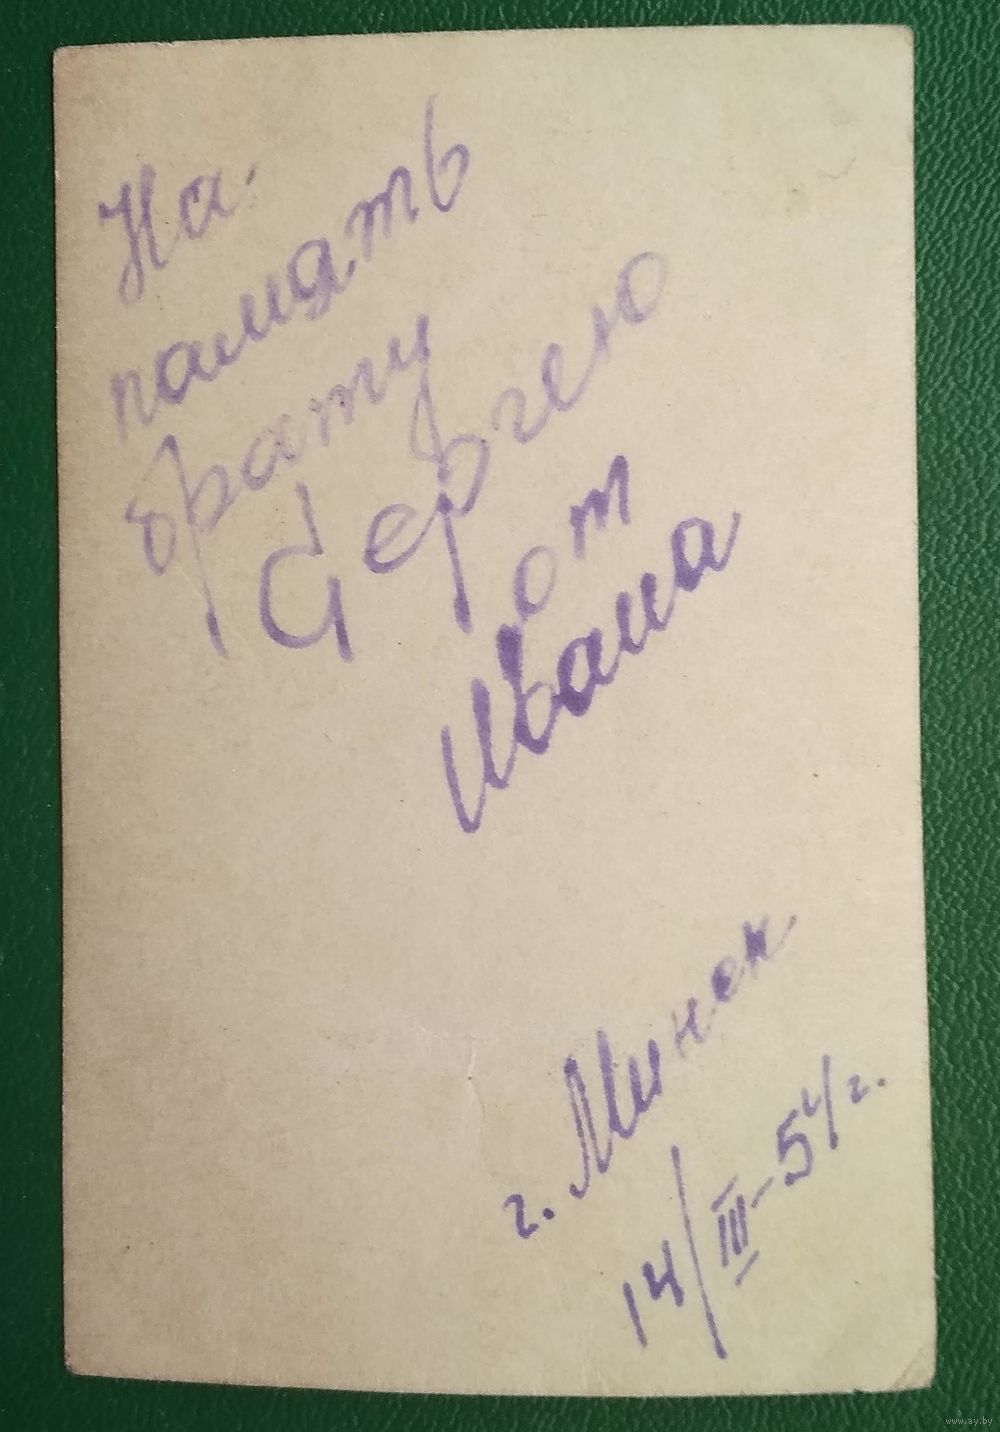 На
память
брату
Сергею
от
Ивана
г. Минск
14/III-54г.
www.ay.by